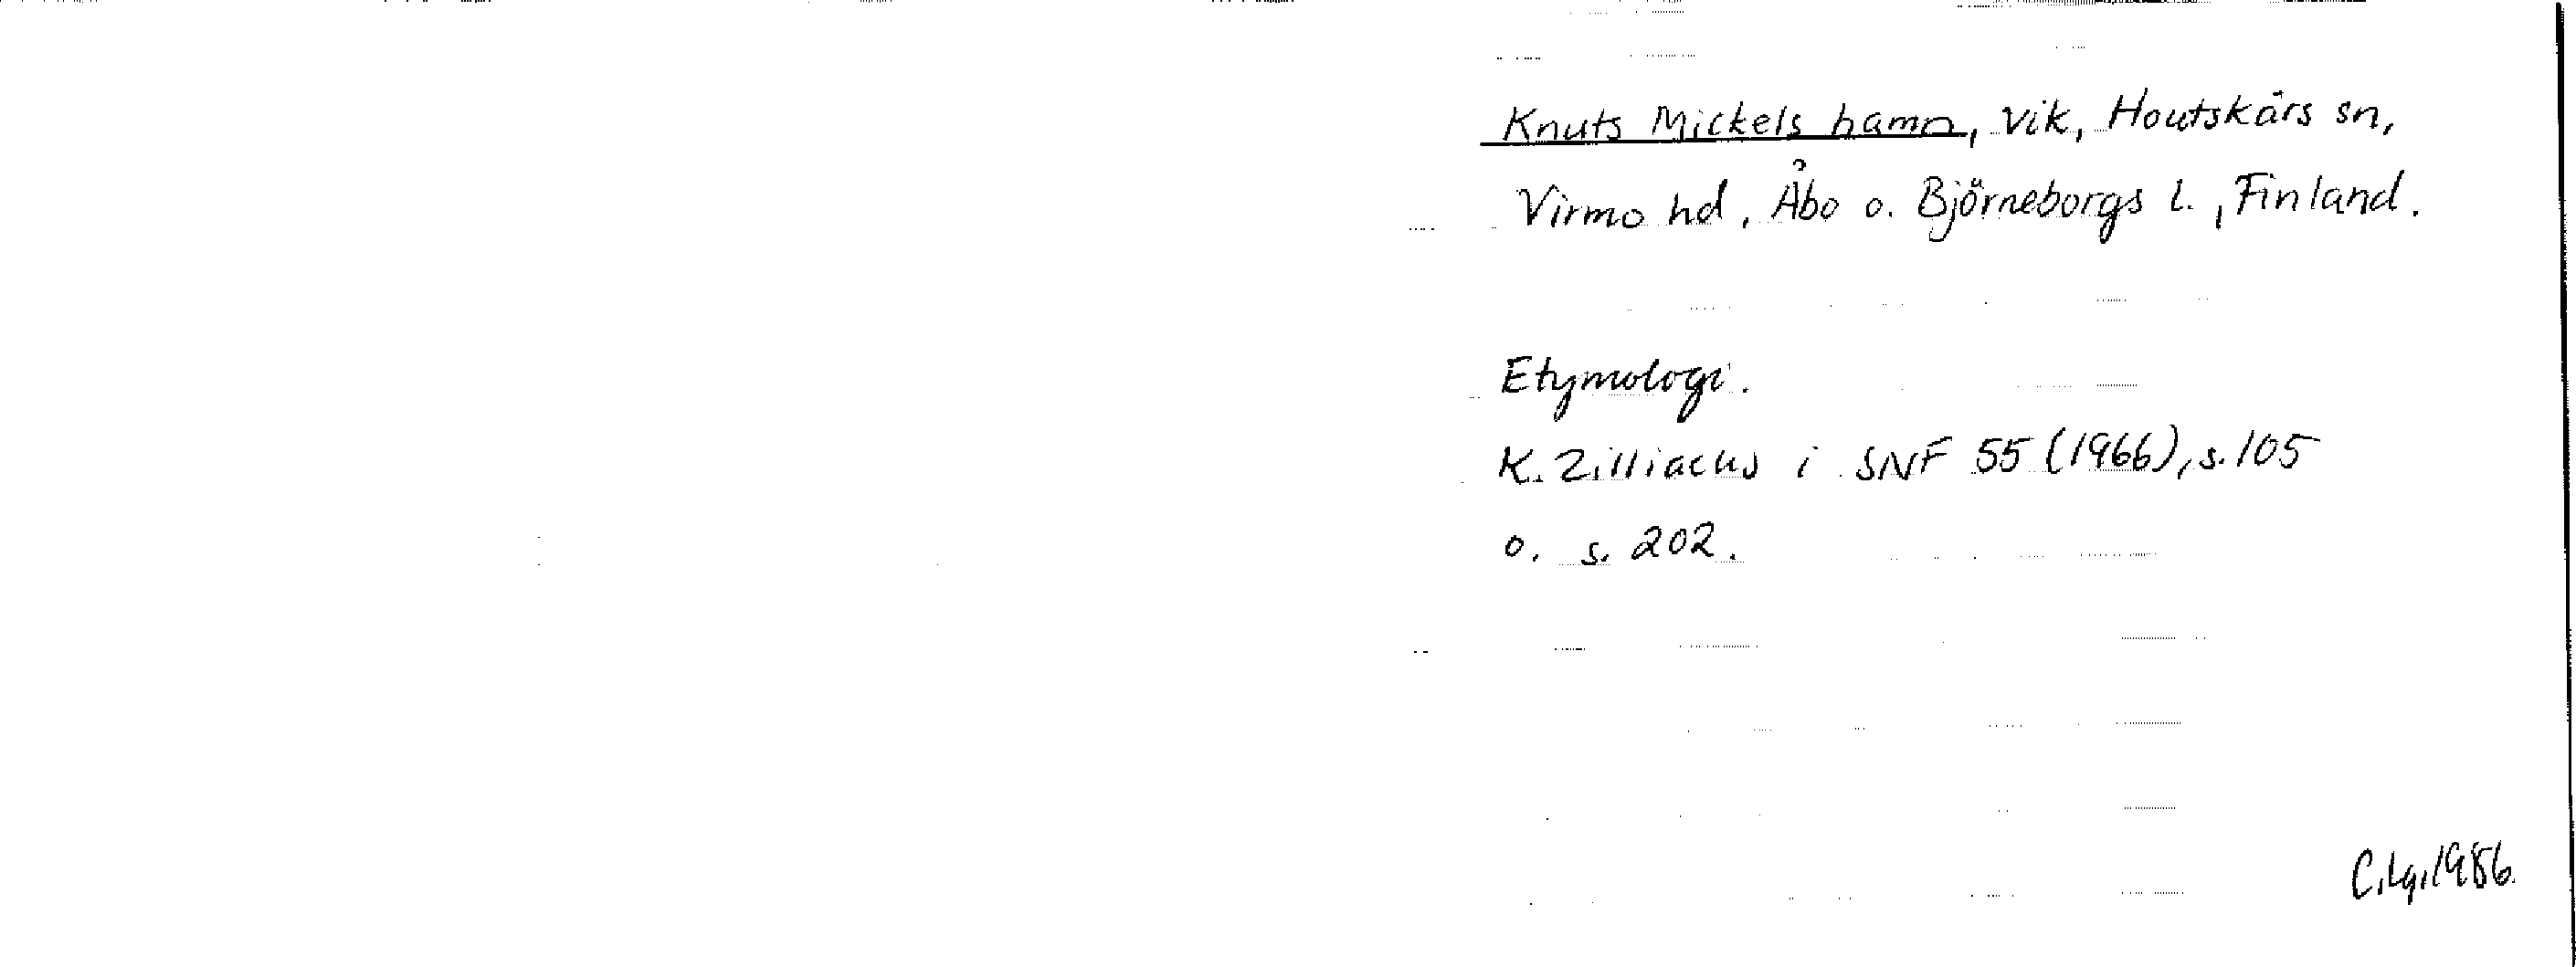 Knuts Mickels hamn, vik, Houtskärs sn,
Virmo hd, Åbo o. Björneborgs l., Finland.
Etymologi.
K. Zilliacus i SNF 55 (1966), s. 105
o. s. 202.
C. Lg. 1986.